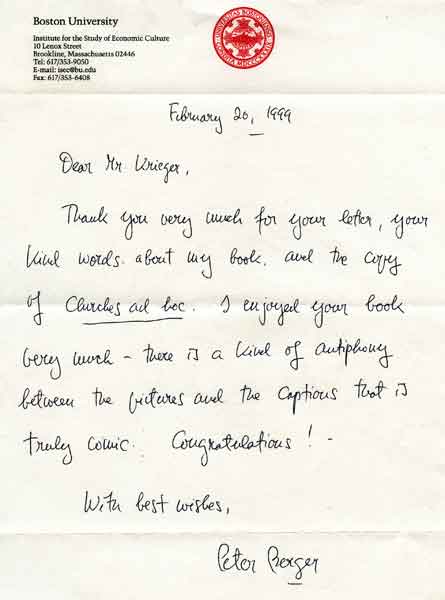 Boston University
Institute for the Study of Economic Culture
10 Lenox Street
Brookline, Massachusetts 02446
Tel: 617/353-9050
E-mail: isec@bu.edu
Fax: 617/353-6408
February 20, 1999
Dear Mr. Krieger,
Thank you very much for your letter, your
kind words about my book, and the copy
of Churches ad hoc. I enjoyed your book
very much – there is a kind of antiphony
between the pictures and the captions that is
truly comic. Congratulations! –
With best wishes,
Peter Berger